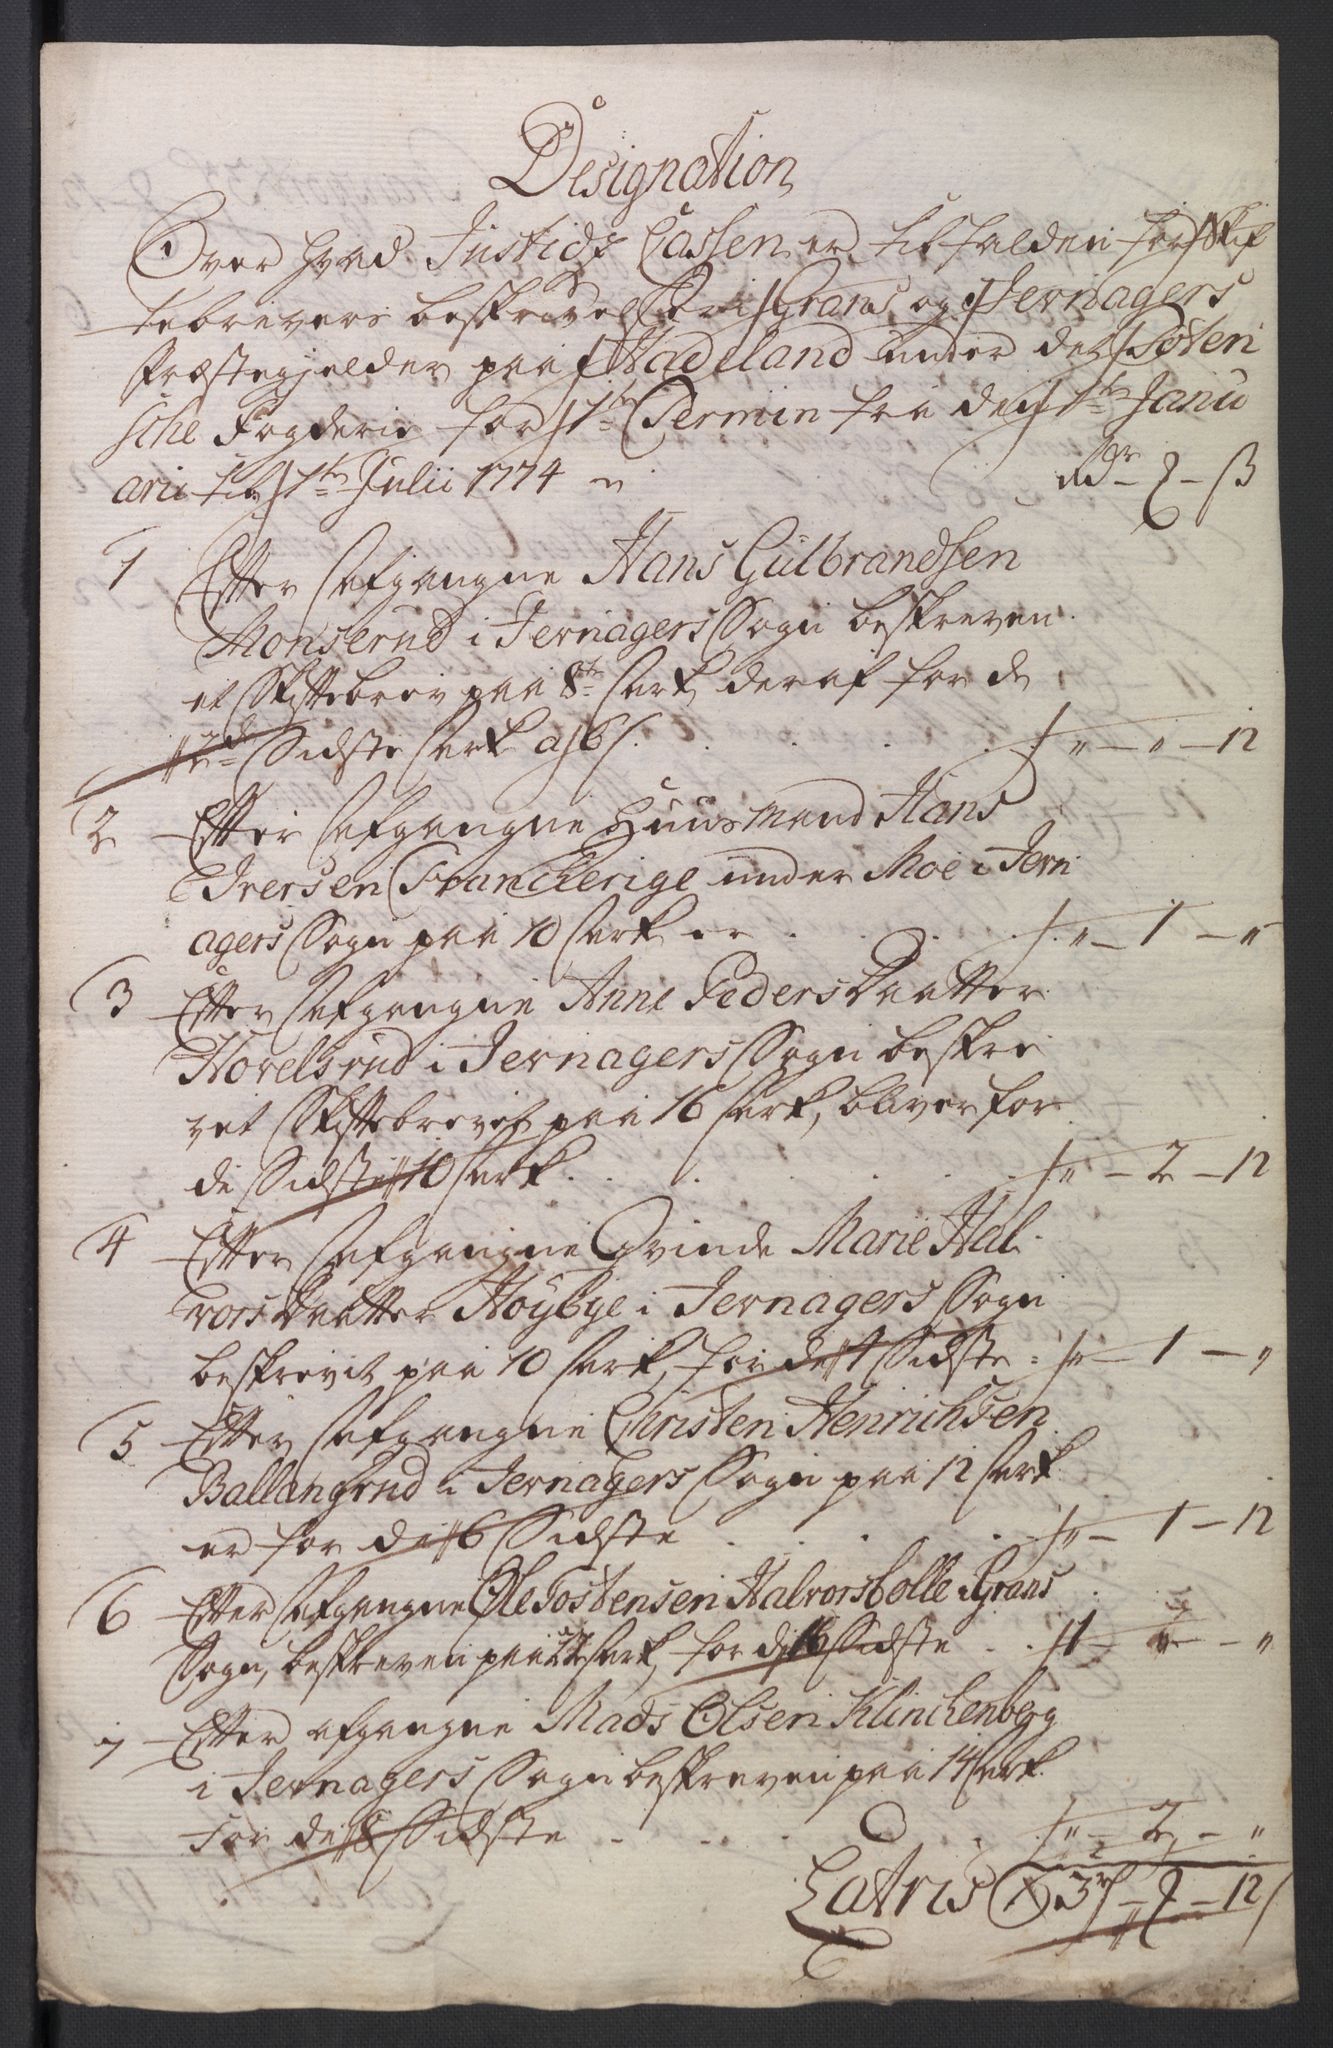 Designation
Over hvad Justidz Cassen er tilfalden for Skif
tebrevers beskrivelse i Grans og Jevnagers
Præstegjelder paa Hadeland under det Toten
sche Fogderie for 1te Termin fra den 1te Janu
arii til 1te Julii 1774 Rdr - ß
1 Efter afgangne Hans Gulbrandsen
Monserud i Jevnagers Sogn beskreven
et Skiftebrev paa 8te ark deraf for de
2de Sidste ark a 6 s. " - " - 12
2 Efter afgangne Huusmand Hans
Iversen Franckerige under Moe i Jevn
agers Sogn paa 10 ark er " - 1 - "
3 Efter afgangne Anne Peders Daatter
Hovelsrud i Jevnagers Sogn beskre
vet Skiftebrevet paa 16 ark, bliver for
de Sidste 10 ark " - 2 - 12
4 Efter afgangne Qvinde Marie Hal
vors Daatter Høybye i Jevnagers Sogn
beskrevit paa 10 ark, for de 4 Sidste " - 1 - "
5 Efter afgangne Christen Henrichsen
Ballangrud i Jevnagers Sogn paa 12 ark
er for de 6 Sidste " - 1 - 12
6 Efter afgangne Ole Tostensen Halvorsbolle i Grans
Sogn, beskreven paa 22 ark, for de 16 Sidste 1 - " - "
7 Efter afgangne Mads Olsen Klinchenberg
i Jevnagers Sogn beskreven paa 14 ark
for de 8 Sidste " - 2 - "
Latris 3 - 12